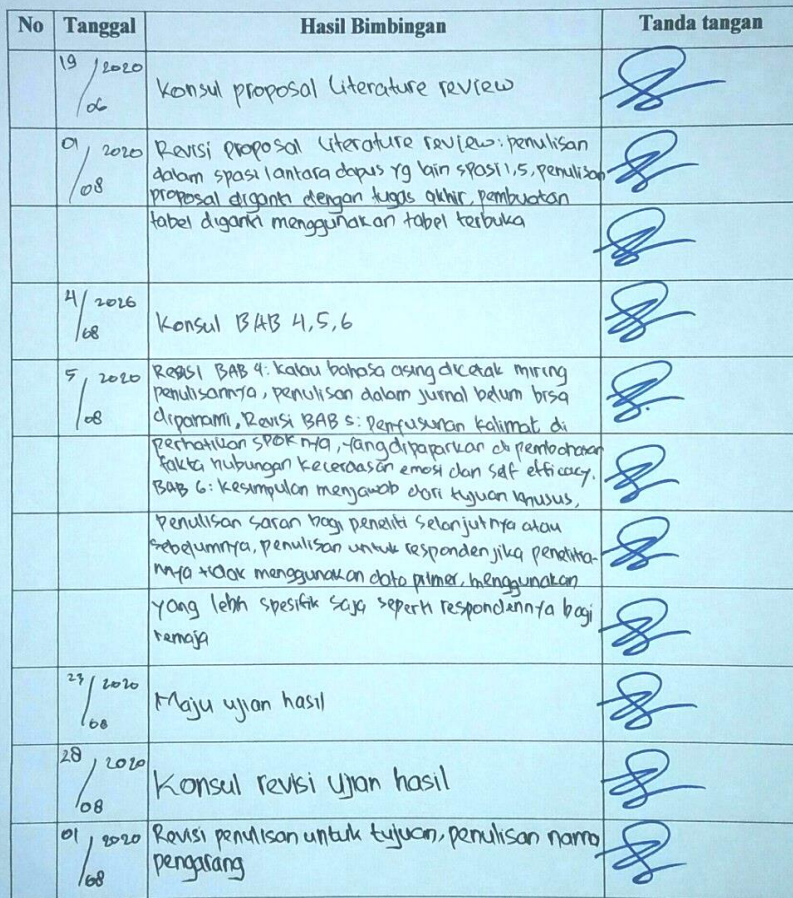 No Tanggal Hasil Bimbingan Tanda tangan
19/06 2020 Konsul proposal literature review
01/08 2020 Revisi proposal literature review: penulisan
dalam spasi 1 antara dapus yg lain spasi 1,5, penulisan
proposal diganti dengan tugas akhir, pembuatan
tabel diganti menggunakan tabel terbuka
4/08 2020 Konsul BAB 4,5,6
5/08 2020 Revisi BAB 4: kalau bahasa asing dicetak miring
penulisannya, penulisan dalam jurnal belum bisa
dipahami, Revisi BAB 5: Penyusunan kalimat di
perhatikan SPOK nya, yang dipaparkan di pembahasan
fakta hubungan kecerdasan emosi dan self efficacy.
BAB 6: kesimpulan menjawab dari tujuan khusus,
penulisan saran bagi peneliti selanjutnya atau
sebelumnya, penulisan untuk responden jika penelitia-
nnya tidak menggunakan data primer, menggunakan
yang lebih spesifik saja seperti respondennya bagi
remaja
23/08 2020 Maju ujian hasil
28/08 2020 Konsul revisi ujian hasil
01/08 2020 Revisi penulisan untuk tujuan, penulisan nama
pengarang